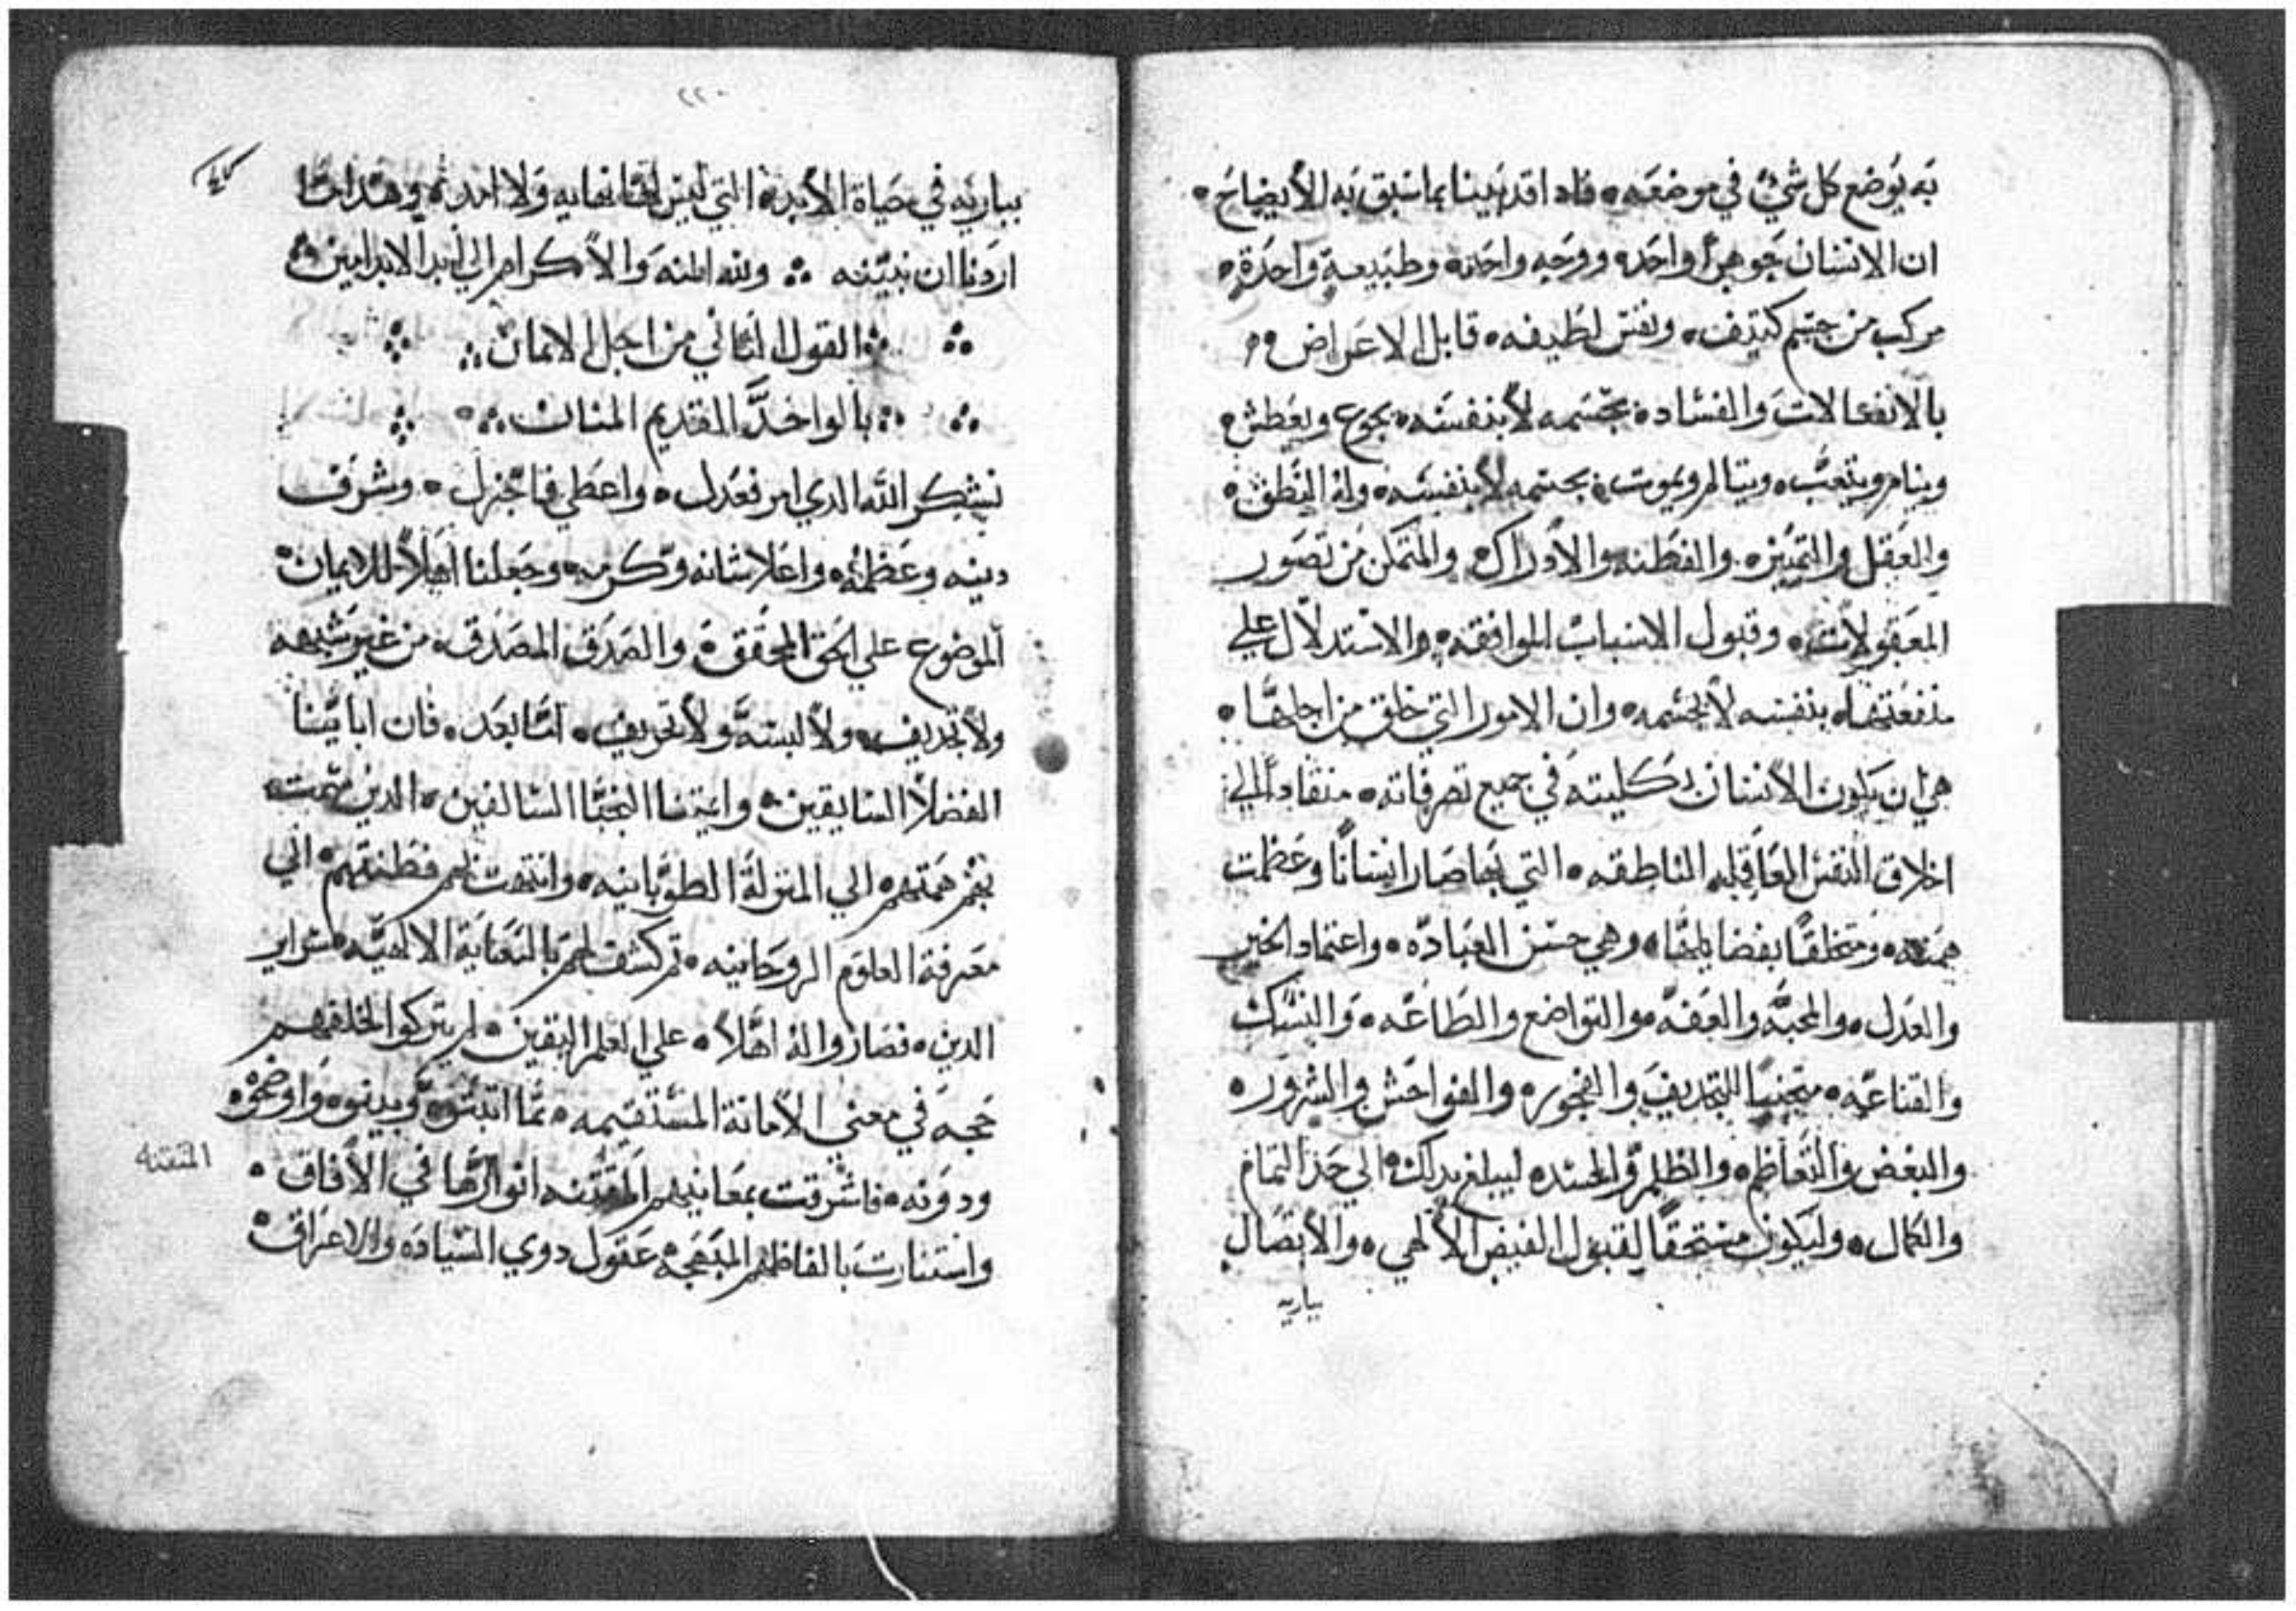 به يوضع كل شيء في موضعه، فادا قد تبينا بما سبق به الأيضاح
ان الانسان جوهراً واحده ووجه واحده وطبيعة واحدة
مركب من جسم كتيف، ونفس لطيفه، قابل الاعراض
بالانفعالات والفساد بجسمه لا بنفسه، يجوع ويعطش
وينام ويتعب، ويتالم ويموت بجسمه لا بنفسه، وله النطق
والعقل والتمييز، والفطنه والأدراك، والتمكن من تصور
المعقولات، وقبول الاسباب الموافقه، والاستدلال علي
منفعتها، بنفسه لا بجسمه، وان الامور التي خلق من اجلها،
هي ان يكون الانسان بكليته في جميع تصرفاته، منقاداً الي
اخلاق النفس العاقله الناطقه، التي بها صار انساناً وعظمت
همته، ومتخلقاً بفضايلها، وهي حسن العباده، واعتماد الخير
والعدل، والمحبه والعفه، والتواضع والطاعه، والنسك
والقناعه، متجنباً للتجديف والفجور، والفواحش والشرور،
والبغض والتعاظم، والظلم والحسد، ليبلغ بدلك الي حد التمام
والكمال، وليكون مستحقاً لقبول الفيض الألهي، والأتصال
بباريه
٢٢٠
بباريه في حياة الأبد، التي ليس لها نهايه ولا امد، وهدا ما
اردنا ان نبينه ⁘ ولله المنه والأكرام الي أبد الابد امين
القول التاني من اجل الامان
بالواحد القديم المنان
نشكر الله الدي امر فعدل، واعطي فاجزل، وشرف
دينه وعظمه، واعلا شانه وكرمه، وجعلنا اهلاً للايمان
الموضوع علي الحق المحقق، والصدق المصدق، من غير شبهه
ولا تجديف، ولا لبسة ولا تحريف، امّا بعد، فان اباينا
الفضلا السابقين، وايمتنا النجبا السالفين، الدين سمت
بهم همتهم، الي المنزلة الطوبانيه، وانتهت بهم فطنتهم، الي
معرفة العلوم الروحانيه، تم كشف لهم بالعناية الالاهيه، سراير
الدين، فصاروا له اهلاً، علي العلم اليقين، لم يتركوا لخلفهم
حجه في معني الأمانة المستقيمه، مما اتبتوه، وبينوه، واوضحوه
ودونه، فاشرقت بمعانيهم المتقنه انوارها في الأفاق،
المتقنه
واستنارت بالفاظهم المبهجه عقول دوي السياده والاعراق،